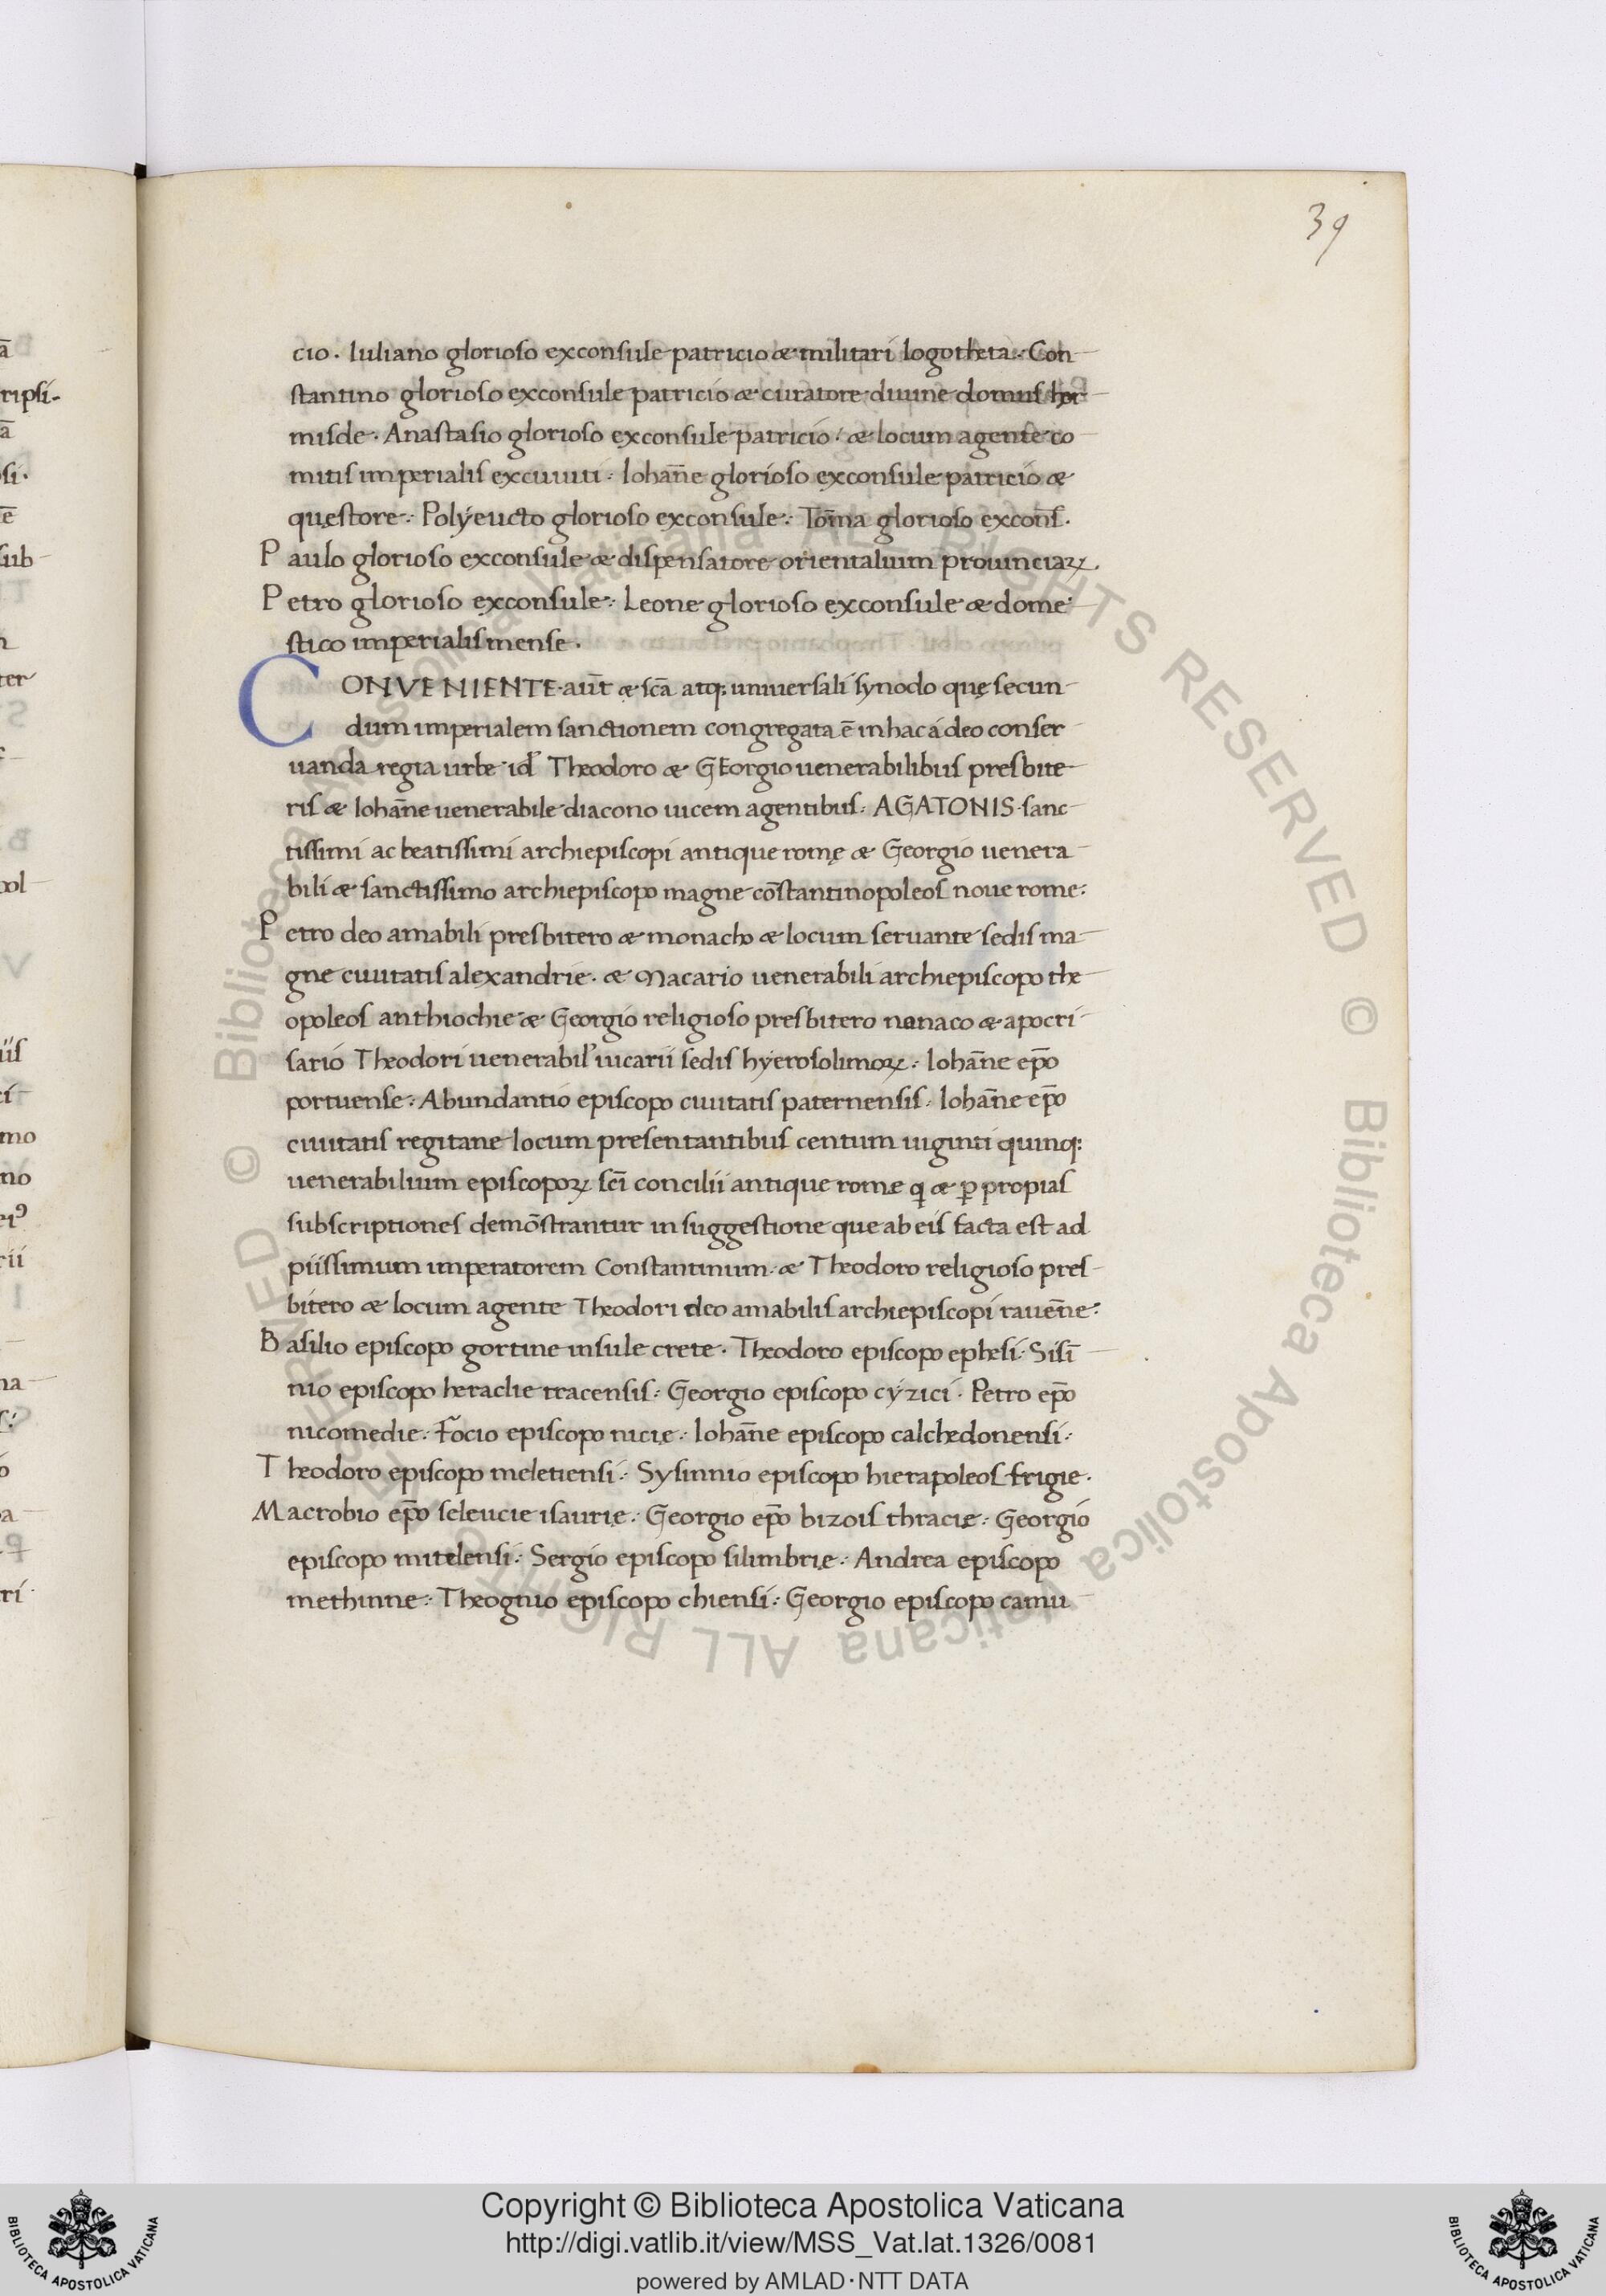 39
cio. Iuliano glorioso exconsule patricio & militari logotheta. Con
stantino glorioso exconsule patricio & curatore diuine domus hor
misde. Anastasio glorioso exconsule patricio. & locum agente co
mitis imperialis excuuiti. Iohañe glorioso exconsule patricio &
quęstore. Polyeucto glorioso exconsule. Tom̄a glorioso excons̄.
Paulo glorioso exconsule & dispensatore orientalium prouinciaꝝ.
Petro glorioso exconsule. Leone glorioso exconsule & dome
stico imperialis mense.
CONVENIENTE aut̄ & sc̄a atq; uniuersali synodo quę secun
dum imperialem sanctionem congregata ē in hac á deo conser
uanda regia urbe id̄ Theodoro & GEorgio uenerabilibus presbite
ris & Iohañe uenerabile diacono uicem agentibus. AGATONIS sanc
tissimi ac beatissimi archiepiscopi antique romę & Georgio uenera
bili & sanctissimo archiepiscopo magne cōstantinopoleos noue rome.
Petro deo amabili presbitero & monacho & locum seruante sedis ma
gne ciuitatis alexandrie. & Macario uenerabili archiepiscopo the
opoleos anthiochie & Georgio religioso presbitero monaco & apocri
sario Theodori uenerabil' uicarii sedis hyerosolimoꝝ. Iohañe ep̄o
portuense. Abundantio episcopo ciuitatis paternensis. Iohañe ep̄o
ciuitatis regitane locum presentantibus centum uiginti quinq;
uenerabilium episcopoꝝ sc̄i concilii antique rome q & ꝑ propias
subscriptiones demōstrantur in suggestione que ab eis facta est ad
piissimum imperatorem Constantinum. & Theodoro religioso pres
bitero & locum agente Theodori deo amabilis archiepiscopi raueñe.
Basilio episcopo gortine insule crete. Theodoro episcopo ephesi. Sisī
nio episcopo heraclie tracensis. Georgio episcopo cyzici. Petro ep̄o
nicomedie. Focio episcopo nicię. Iohañe episcopo calchedonensi.
Theodoro episcopo meletiensi. Sysinnio episcopo hierapoleos frigie.
Macrobio ep̄o seleucie isaurię. Georgio ep̄o bizois thracię. Georgio
episcopo mitelensi. Sergio episcopo silimbrię. Andrea episcopo
methinne. Theognio episcopo chiensi. Georgio episcopo camu
© Biblioteca Apostolica Vaticana ALL RIGHTS RESERVED © Biblioteca Apostolica Vaticana ALL RIGHTS RESERVED
Copyright © Biblioteca Apostolica Vaticana
http://digi.vatlib.it/view/MSS_Vat.lat.1326/0081
powered by AMLAD·NTT DATA
BIBLIOTECA APOSTOLICA VATICANA
BIBLIOTECA APOSTOLICA VATICANA